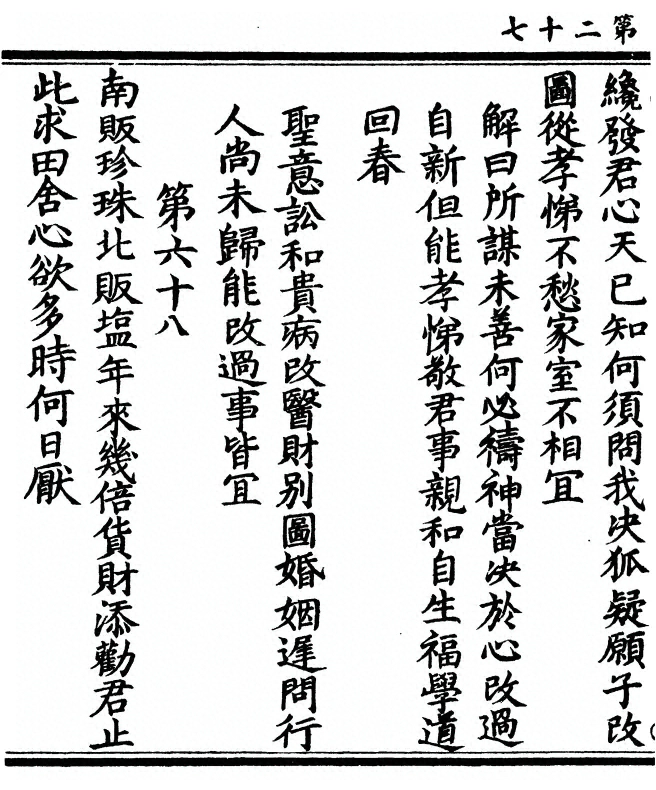 第二十七
纔發君心天已知何須問我决狐疑願子改
圖從孝悌不愁家室不相冝
解曰所謀未善何必禱神當决於心改過
自新但能孝悌敬君事親和自生福學道
回春
聖意訟和貴病改醫財别圖婚姻遲問行
人尚未歸能改過事皆冝
第六十八
南販珍珠北販塩年來幾倍貨財添勸君止
此求田舍心欲多時何日厭